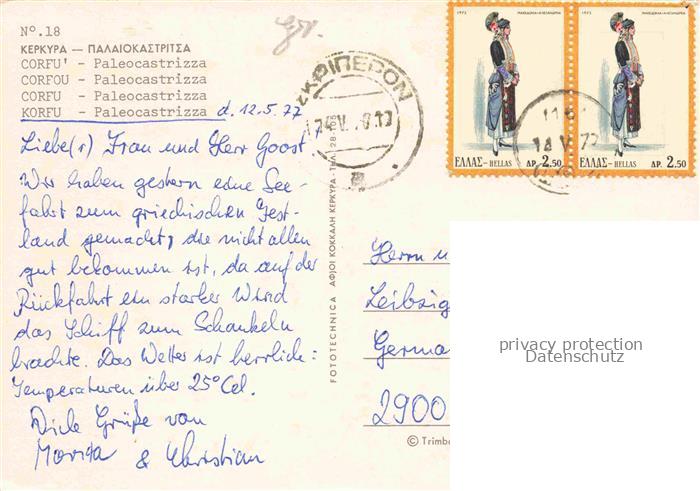 N°.18
ΚΕΡΚΥΡΑ — ΠΑΛΑΙΟΚΑΣΤΡΙΤΣΑ
CORFU' - Paleocastrizza
CORFOU - Paleocastrizza
CORFU - Paleocastrizza
KORFU - Paleocastrizza d. 12.5.77
Liebe(r) Frau und Herr Goost
Wir haben gestern eine See-
fahrt zum griechischen Fest-
land gemacht, die nicht allen
gut bekommen ist, da auf der
Rückfahrt ein starker Wind
das Schiff zum Schaukeln
brachte. Das Wetter ist herrlich:
Temperaturen über 25° Cel.
Viele Grüße von
& Christian
FOTOTECHNICA ΑΦΙΟΙ ΚΟΚΚΑΛΗ ΚΕΡΚΥΡΑ - ΤΗΛ. 28-105
ΣΚΡΙΠΕΡΟΝ
1973 ΜΑΚΕΔΟΝΙΑ-ΑΛΕΞΑΝΔΡΕΙΑ
ΕΛΛΑΣ-HELLAS ΔΡ. 2.50
1973 ΜΑΚΕΔΟΝΙΑ-ΑΛΕΞΑΝΔΡΕΙΑ
ΕΛΛΑΣ-HELLAS ΔΡ. 2.50
Herrn u
Leibzig
Germa
2900
© Trimbo
privacy protection
Datenschutz